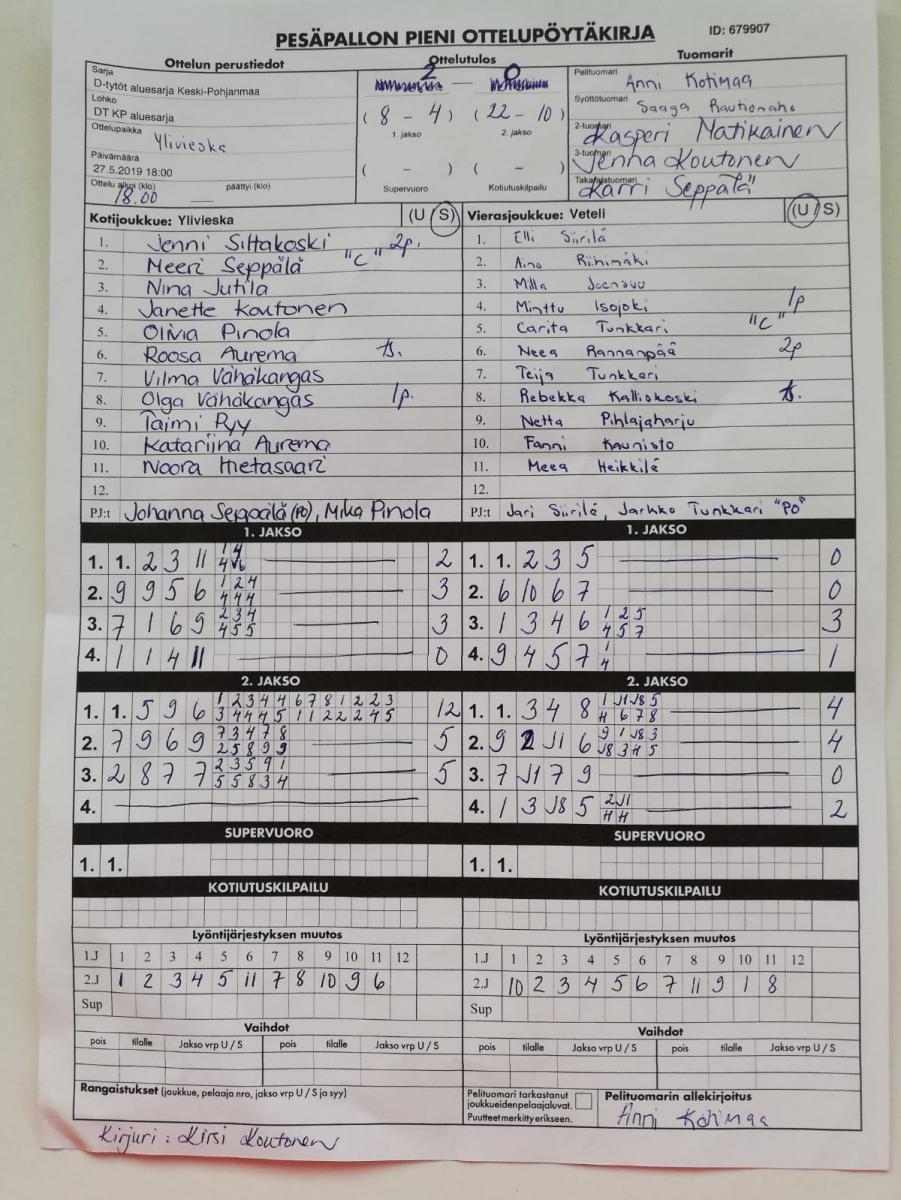 PESÄPALLON PIENI OTTELUPÖYTÄKIRJA
ID: 679907
Ottelun perustiedot
Sarja
D-tytöt aluesarja Keski-Pohjanmaa
Lohko
DT KP aluesarja
Ottelupaikka
Ylivieska
Päivämäärä
27.5.2019 18:00
Ottelu alkoi (klo) päättyi (klo)
18.00
Ottelutulos
2 — 0
(8 - 4) (22 - 10)
1. jakso 2. jakso
( - ) ( - )
Supervuoro Kotiutuskilpailu
Tuomarit
Pelituomari Anni Kotimaa
Syöttötuomari Saaga Rautionaho
2-tuomari Kasperi Matikainen
3-tuomari Jenna Koutonen
Takarajatuomari Karri Seppälä
Kotijoukkue: Ylivieska (U / S)
1. Jenni Siltakoski 2p.
2. Meeri Seppälä "C"
3. Nina Jutila
4. Janette Koutonen
5. Olivia Pinola
6. Roosa Aurema
7. Vilma Vähäkangas
8. Olga Vähäkangas 1p.
9. Taimi Pyy
10. Katariina Aurema
11. Noora Hietasaari
12.
PJ:t Johanna Seppälä (PO), Mika Pinola
Vierasjoukkue: Veteli (U / S)
1. Elli Siirilä
2. Aino Riihimäki
3. Milla Joensuu
4. Minttu Isojoki 1p
5. Carita Tunkkari "C"
6. Neea Rannanpää 2p
7. Teija Tunkkari
8. Rebekka Kalliokoski
9. Netta Pihlajaharju
10. Fanni Kaunisto
11. Meea Heikkilä
12.
PJ:t Jari Siirilä, Jarkko Tunkkari "PO"
1. JAKSO
1. 1. 2 3 11 2
2. 9 9 5 6 1 2 4 3
4 4 4
3. 7 1 6 9 2 3 4 3
4 5 5
4. 1 1 4 11 0
1. JAKSO
1. 1. 2 3 5 0
2. 6 10 6 7 0
3. 1 3 4 6 1 2 5 3
4 5 7
4. 9 4 5 7 1 1
4
2. JAKSO
1. 1. 5 9 6 1 2 3 4 4 6 7 8 1 2 2 3 12
3 4 4 4 5 1 1 2 2 2 4 5
2. 7 9 6 9 7 3 4 7 8 5
2 5 8 9 9
3. 2 8 7 7 2 3 5 9 1 5
5 5 8 3 4
4.
2. JAKSO
1. 1. 3 4 8 4
2. 9 2 J1 6 4
3. 7 J1 7 9 0
4. 1 3 J8 5 2 J1 2
4 4
SUPERVUORO
1. 1.
SUPERVUORO
1. 1.
KOTIUTUSKILPAILU
KOTIUTUSKILPAILU
Lyöntijärjestyksen muutos
1.J 1 2 3 4 5 6 7 8 9 10 11 12
2.J 1 2 3 4 5 11 7 8 10 9 6
Sup
Lyöntijärjestyksen muutos
1.J 1 2 3 4 5 6 7 8 9 10 11 12
2.J 10 2 3 4 5 6 7 11 9 1 8
Sup
Vaihdot
pois tilalle Jakso vrp U / S pois tilalle Jakso vrp U / S
Vaihdot
pois tilalle Jakso vrp U / S pois tilalle Jakso vrp U / S
Rangaistukset (joukkue, pelaaja nro, jakso vrp U / S ja syy)
Pelituomari tarkastanut
joukkueiden pelaajaluvat.
Puutteet merkitty erikseen.
Pelituomarin allekirjoitus
Anni Kotimaa
Kirjuri : Kirsi Koutonen